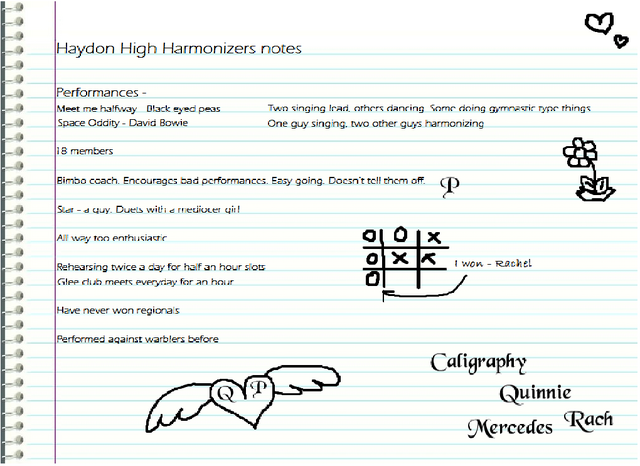 Haydon High Harmonizers notes
Performances -
Meet me halfway Black eyed peas Two singing lead, others dancing. Some doing gymnastic type things
Space Oddity - David Bowie One guy singing, two other guys harmonizing
18 members
Bimbo coach. Encourages bad performances. Easy going. Doesn't tell them off. P
Star - a guy. Duets with a mediocer girl
All way too enthusiastic
O O X
Rehearsing twice a day for half an hour slots O X X I won - Rachel
Glee club meets everyday for an hour O
Have never won regionals
Performed against warblers before
Caligraphy
Q P Quinnie
Mercedes Rach